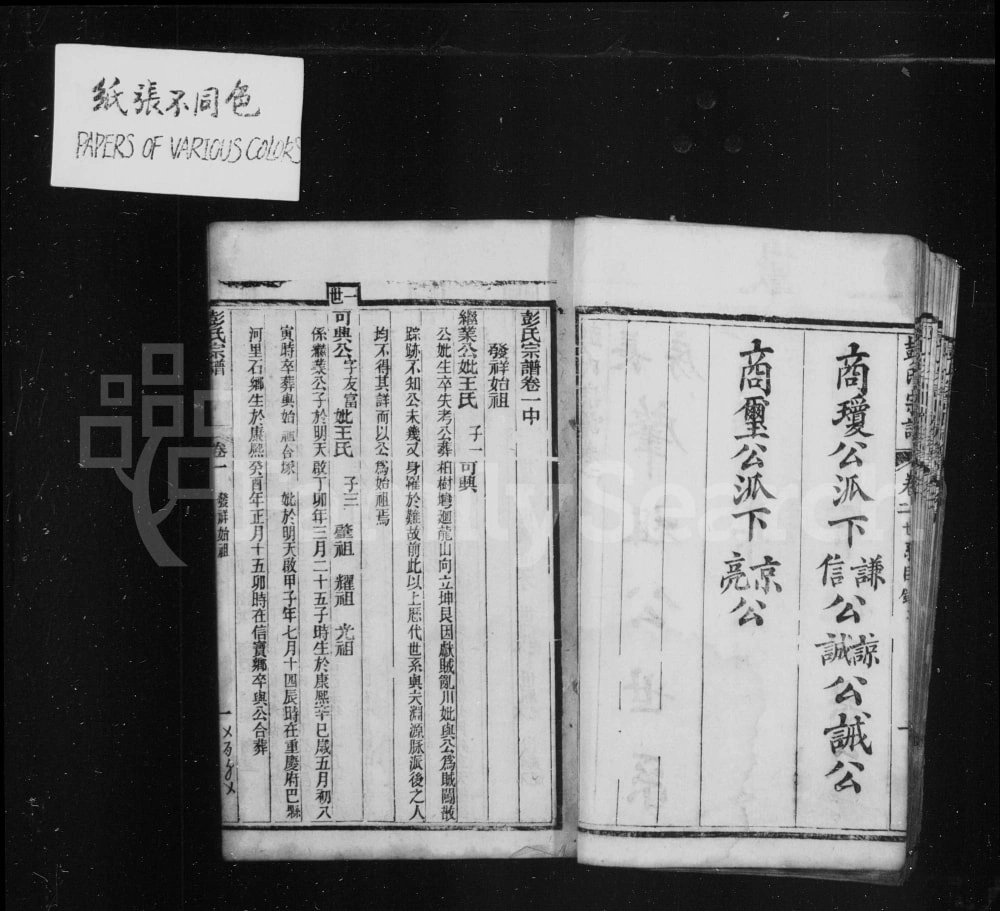 紙張不同色
PAPERS OF VARIOUS COLORS
商瓊公派下謙信公諒誠公誡公
商璽公派下京亮公
彭氏宗譜卷一中
發祥始祖
繼業公妣王氏 子一 可興
公妣生卒失考公葬柏樹塆迴龍山向立坤艮因獻賊亂川妣與公爲賊鬭散
踪跡不知公未幾又身罹於難故前此以上歷代世系與夫淵源脉派後之人
均不得其詳而以公爲始祖焉
一世
可興公字友富妣王氏 子三 肇祖 耀祖 光祖
係繼業公子於明天啟丁卯年三月二十五子時生於康熙辛巳歲五月初八
寅時卒葬與始祖合塚 妣於明天啟甲子年七月十四辰時在重慶府巴縣
河里石鄉生於康熙癸酉年正月十五卯時在信寶鄉卒與公合葬
彭氏宗譜 卷一 發祥始祖 一
FamilySearch